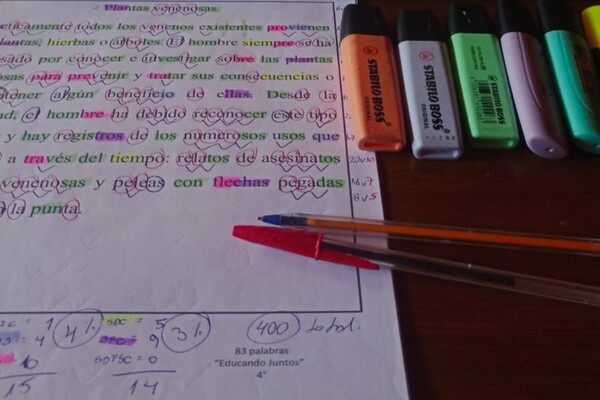 Plantas venenosas
cticamente todos los venenos existentes provienen
lantas, hierbas o árboles. El hombre siempre se ha
sado por conocer e investigar sobre las plantas
osas para prevenir y tratar sus consecuencias o
tener algún beneficio de ellas. Desde la
ud, el hombre ha debido reconocer este tipo
y hay registros de los numerosos usos que
a través del tiempo: relatos de asesinatos
venenosas y peleas con flechas pegadas
la punta.
16v7
8v5
= 1 4% SDC = 5 3% 400 total.
= 4 = 9
10 SDPSC = 0
15 14
83 palabras
"Educando Juntos"
4°
STABILO BOSS ORIGINAL
STABILO BOSS ORIGINAL
STABILO BOSS ORIGINAL